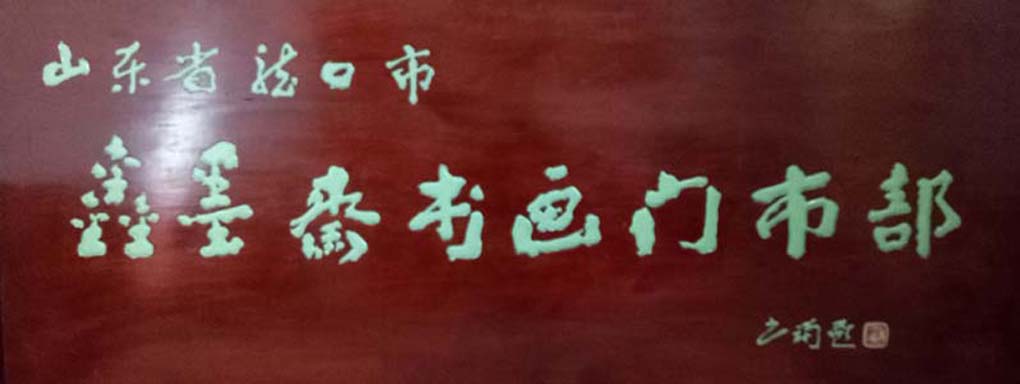 山东省龙口市
鑫墨斋书画门市部